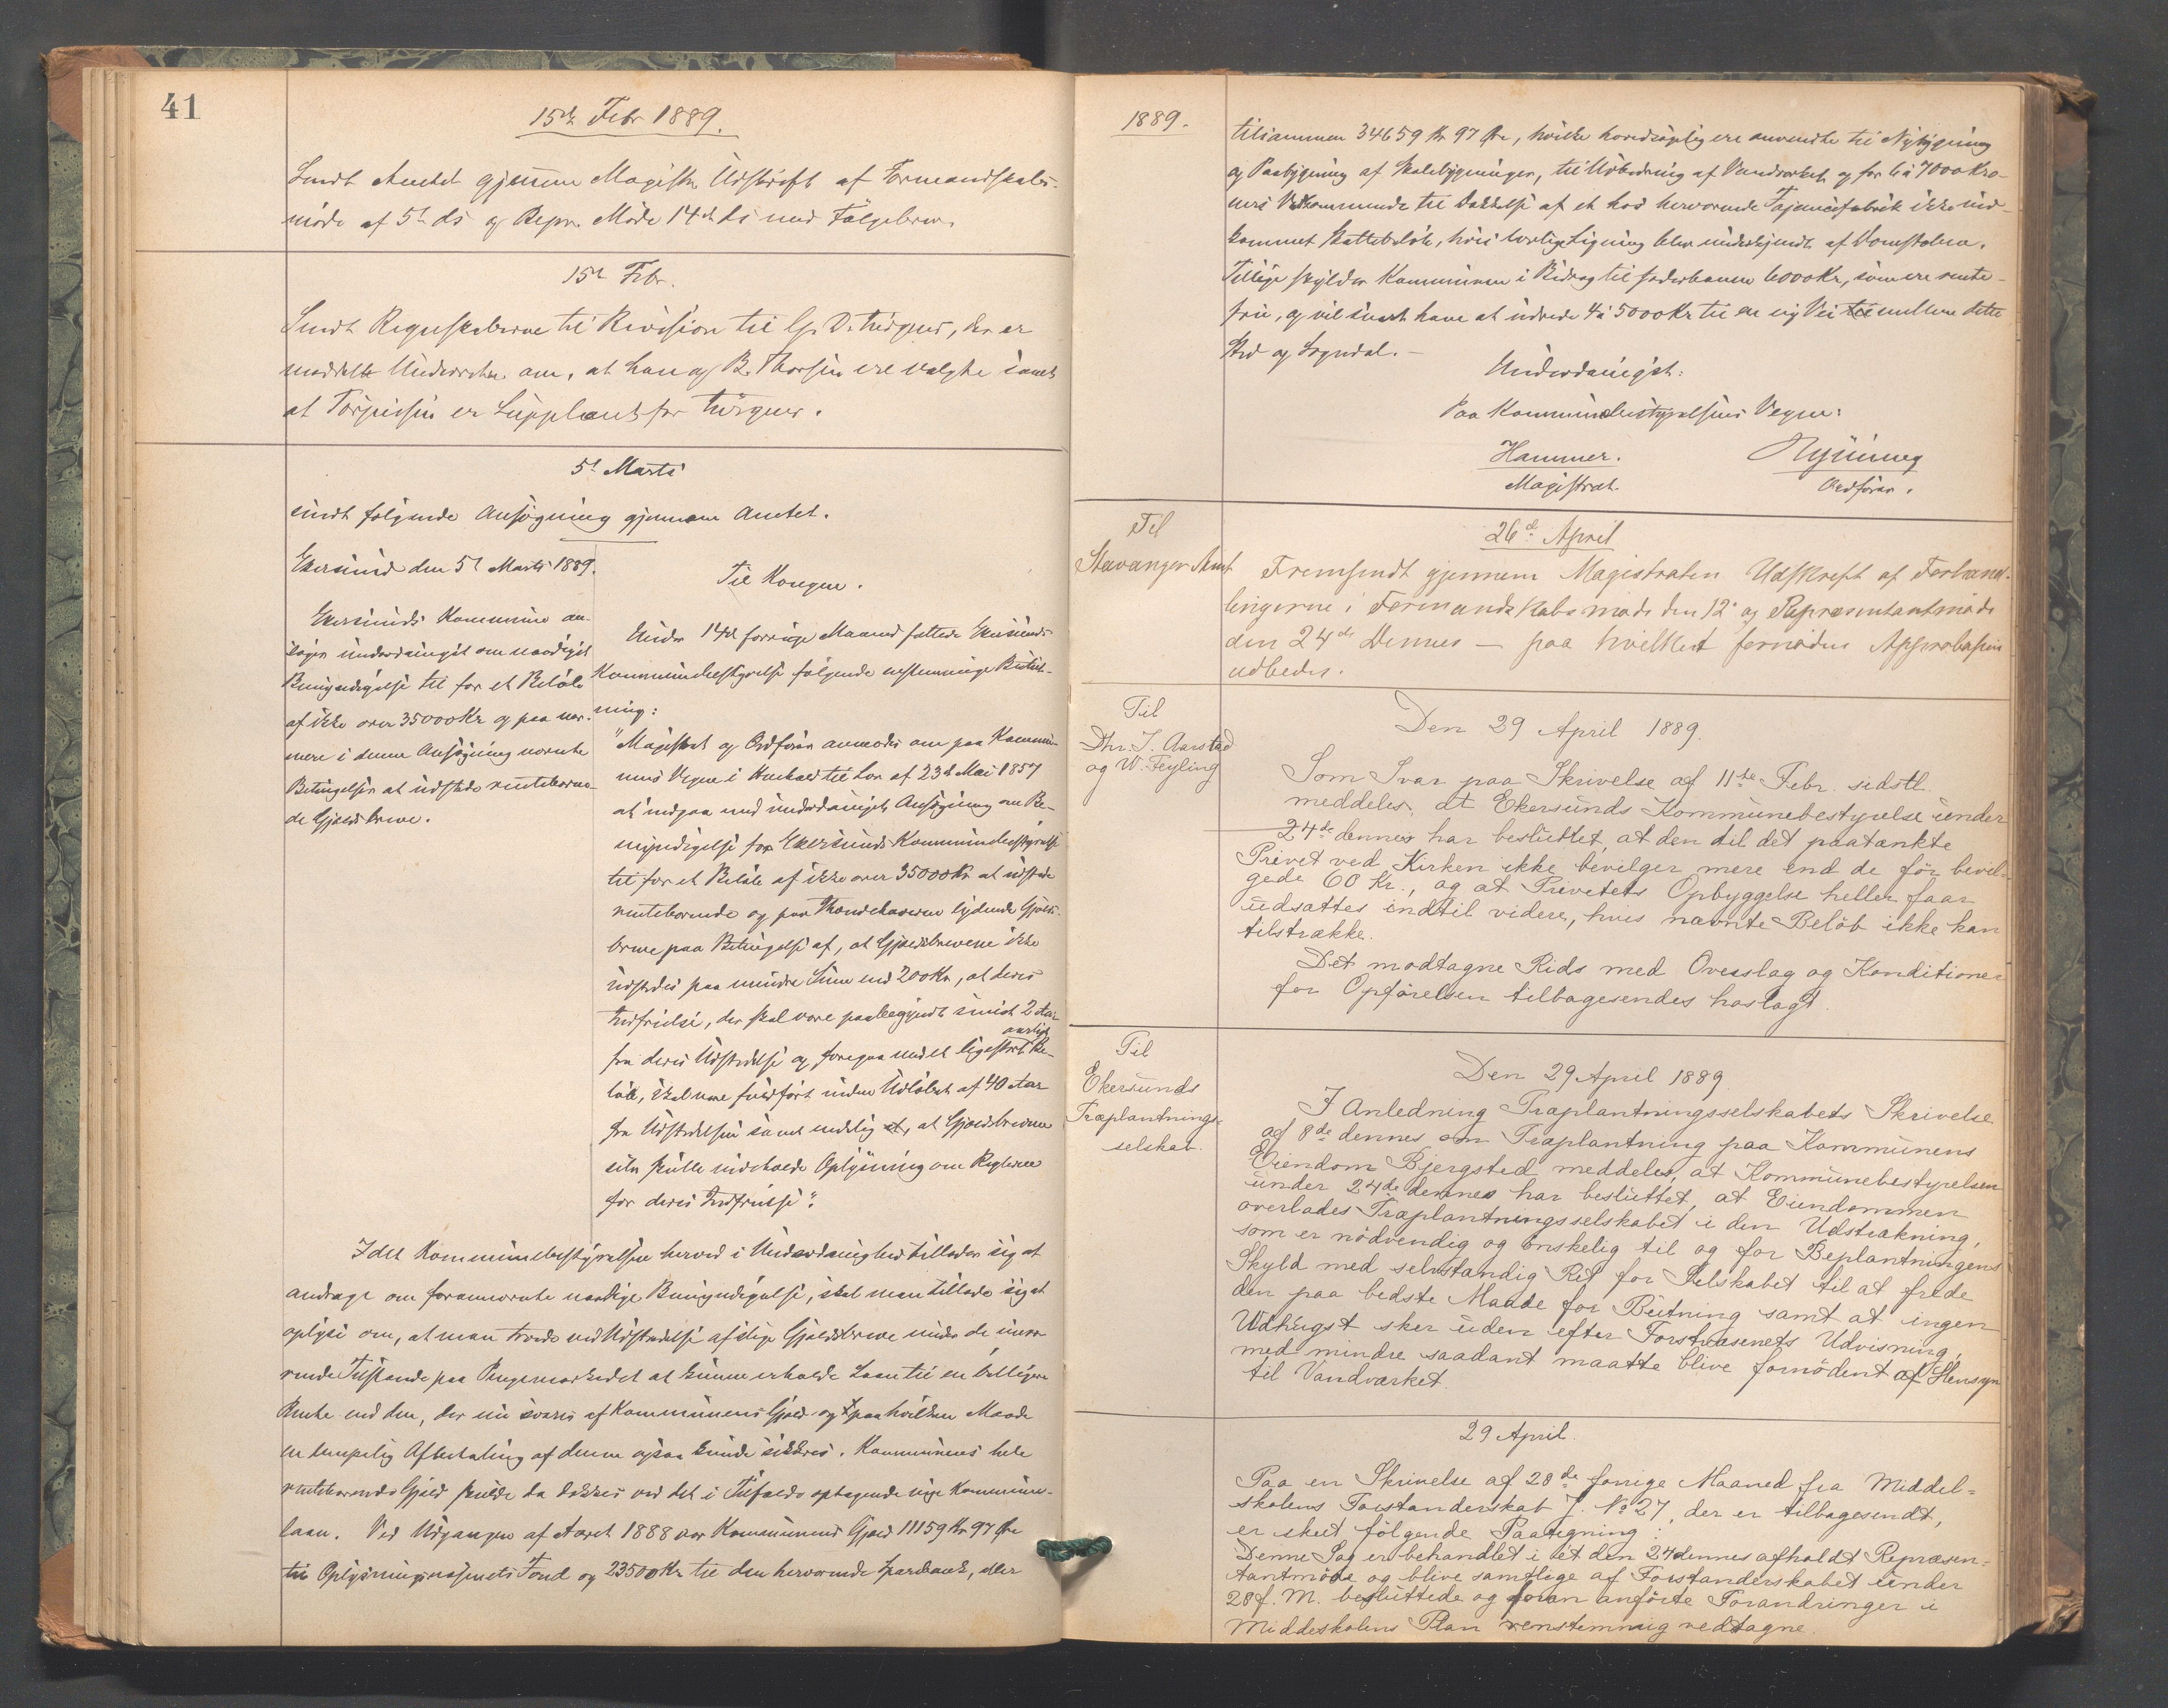 41
15de Febr 1889.
Sendt Amtet gjennem Magistr. Udskrift af Formandskabs-
møde af 5te ds og Repr. Møde 14de ds med Følgebrev.
15de Febr.
Sendt Regnskaberne til Revision til
meddelt Underretn. om, at han og B. Thorsen ere valgte samt
at er Supplent for
5te Marts
sendt følgende Ansøgning gjennem Amtet.
Ekersund den 5te Marts 1889.
Ekersunds Kommune an-
søger underdanigst om naadigst
Bemyndigelse til for et Beløb
af ikke over 35000 Kr og paa nær-
mere i denne Ansøgning nævnte
Betingelser at udstede rentebæren-
de Gjældsbreve.
Til Kongen.
Under 14de forrige Maaned fattede Ekersunds
Kommunebestyrelse følgende enstemmige Beslut-
ning:
"Magistrat og Ordfører anmodes om paa Kommu-
nens Vegne i Henhold til Lov af 23de Mai 1857
at indgaa med underdanigst Ansøgning om Be-
myndigelse for Ekersunds Kommunebestyrelse
til for et Beløb af ikke over 35000 Kr at udstede
rentebærende og paa Ihændehaveren lydende Gjælds-
breve paa Betingelse af, at Gjældsbrevene ikke
udstedes paa mindre Sum end 200 Kr, at deres
Indfrielse, der skal være paabegyndt senest 2 Aar
fra deres Udstedelse og foregaa med et ligestort aarligt Be-
løb, skal være fuldført inden Udløbet af 40 Aar
fra Udstedelsen samt endelig at, at Gjældsbrevene
selv skulle indeholde Oplysning om Reglerne
for deres Indfrielse".
Idet Kommunebestyrelsen herved i Underdanighed tillader sig at
andrage om forannævnte naadige Bemyndigelse, skal man tillade sig at
oplyse om, at man troede ved Udstedelse af slige Gjældsbreve under de nuvæ-
rende Tilstande paa Pengemarkedet at kunne erholde Laan til en billigere
Rente end den, der nu svares af Kommunens Gjæld og paa hvilken Maade
en lempelig Afbetaling af denne ogsaa kunde sikkres. Kommunens hele
rentebærende Gjæld skulde da dækkes ved det i Tilfælde optagende nye Kommune-
laan. Ved Udgangen af Aaret 1888 var Kommunens Gjæld 11159 Kr 97 Øre
til Oplysningsvæsenets Fond og 23500 Kr til den herværende Sparebank, eller
1889.
tilsammen 34659 Kr 97 Øre, hvilke hovedsagelig ere anvendte til Nybygning
og Paabygning af Skolebygninger, til Udbedring af Vandværket og for 6 à 7000 Kro-
ners Vedkommende til Dækkelse af et hos herværende Fajancefabrik ikke ind-
kommet Skattebeløb, hvis lovlige Ligning blev underkjendt af Domstolen.
Tillige skylder Kommunen i Bidrag til Jæderbanen 6000 Kr, som ere rente-
frie, og vil snart have at udrede 4 à 5000 Kr til en ny Vei til mellem dette
Sted og Sogndal.
Underdanigst:
Paa Kommunebestyrelsens Vegne:
Hammer.
Magistrat.
Ordfører.
Til
Stavanger Amt
26de April
Fremsendt gjennem Magistraten Udskrift af Forhand-
lingerne i Formandskabsmøde den 12te og Repræsentantmøde
den 24de Dennes — paa hvilket fornøden Approbasion
udbedes.
Til
Dhr. J. Aarstad
og W. Feyling
Den 29 April 1889.
Som Svar paa Skrivelse af 11te Febr. sidstl.
meddeles, at Ekersunds Kommunebestyrelse under
24de dennes har besluttet, at den til det paatænkte
Privet ved Kirken ikke bevilger mere end de før bevil-
gede 60 Kr., og at Privetets Opbyggelse heller faar
udsættes indtil videre, hvis nævnte Beløb ikke kan
tilstrække.
Det modtagne Rids med Overslag og Konditioner
for Opførelsen tilbagesendes haslagt.
Til
Ekersunds
Træplantnings-
selskab.
Den 29 April 1889
I Anledning Træplantningsselskabets Skrivelse
af 8de dennes om Træplantning paa Kommunens
Eiendom Bjergsted meddeles, at Kommunebestyrelsen
under 24de dennes har besluttet, at Eiendommen
overlades Træplantningsselskabet i den Udstrækning,
som er nødvendig og ønskelig til og for Beplantningens
Skyld med selvstændig Ret for Selskabet til at frede
den paa bedste Maade for Beitning samt at ingen
Udhugst sker uden efter Forstvæsenets Udvisning,
med mindre saadant maatte blive fornödent af Hensyn
til Vandværket.
29 April.
Paa en Skrivelse af 28de forrige Maaned fra Middel-
skolens Forstanderskab J. No 27, der er tilbagesendt,
er skeet følgende Paategning:
Denne Sag er behandlet i et den 24 dennes afholdt Repræsen-
tantmøde og blive samtlige af Forstanderskabet under
28 f. M. besluttede og foran anførte Forandringer i
Middeskolens Plan enstemmig vedtagne.